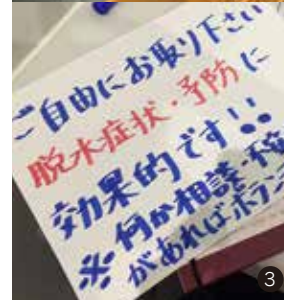 ご自由にお取り下さい
脱水症状・予防に
効果的です!!
※何か相談・不安
があればボラン
3